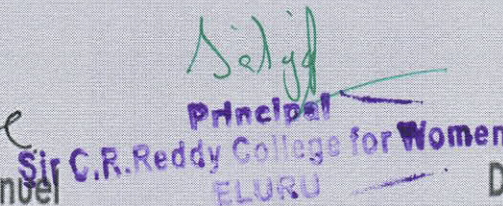 Principal
Sir C.R.Reddy College for Women
ELURU